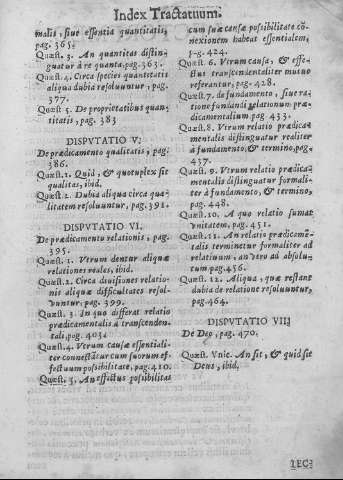 Index Tractatuum.
malis, siue essentia quantitatis,
pag. 365.
Quæst. 3. An quantitas distin-
guatur à re quanta. pag. 363.
Quæst. 4. Circa species quantitatis
aliqua dubia resoluuntur, pag.
377.
Quæst 5. De proprietatibus quan-
titatis, pag. 383
DISPVTATIO V.
De prædicamento qualitatis, pag.
386.
Quæst. 1. Quid, & quotuplex sit
qualitas, ibid.
Quæst 2. Dubia aliqua circa qua-
litatem resoluuntur, pag. 391.
DISPVTATIO VI.
De prædicamento relationis, pag.
395.
Quæst 1. Vtrum dentur aliquæ
relationes reales, ibid.
Quæst. 2. Circa diuisiones relatio-
nis aliquæ difficultates resol-
vuntur, pag. 399.
Quæst. 3. In quo differat relatio
prædicamentalis à transcenden-
tali, pag. 403.
Quæst. 4. Vtrum causæ essentiali-
ter connectātur cum suorum ef-
fectuum possibilitate, pag. 410.
Quæst. 5. An effectus possibilitas
cum suæ causæ possibilitate cō-
nexionem habeat essentialem,
pag. 424.
Quæst. 6. Vtrum causa, & effe-
ctus transcendentaliter mutuo
referantur, pag. 428.
Quæst. 7. de fundamento, siue ra-
tione fundandi relationum præ-
dicamentalium pag. 433
Quæst. 8. Vtrum relatio prædica-
mentalis distinguatur realiter
à fundamento, & termino, pag.
437.
Quæst. 9. Vtrum relatio prædica-
mentalis distinguatur formali-
ter à fundamento, & termino,
pag. 448.
Quæst. 10. A quo relatio sumat
vnitatem, pag. 451.
Quæst. 11. An relatio prædicamē-
talis terminetur formaliter ad
relatiuum, an vero ad absolu-
tum pag. 456.
Quæst. 12. Aliqua, quæ restant
dubia de relatione resoluuntur,
pag. 464.
DISPVTATIO VII.
De Deo, pag. 470.
Quæst. Vnic. An sit, & quid sit
Deus, ibid.
LEC-